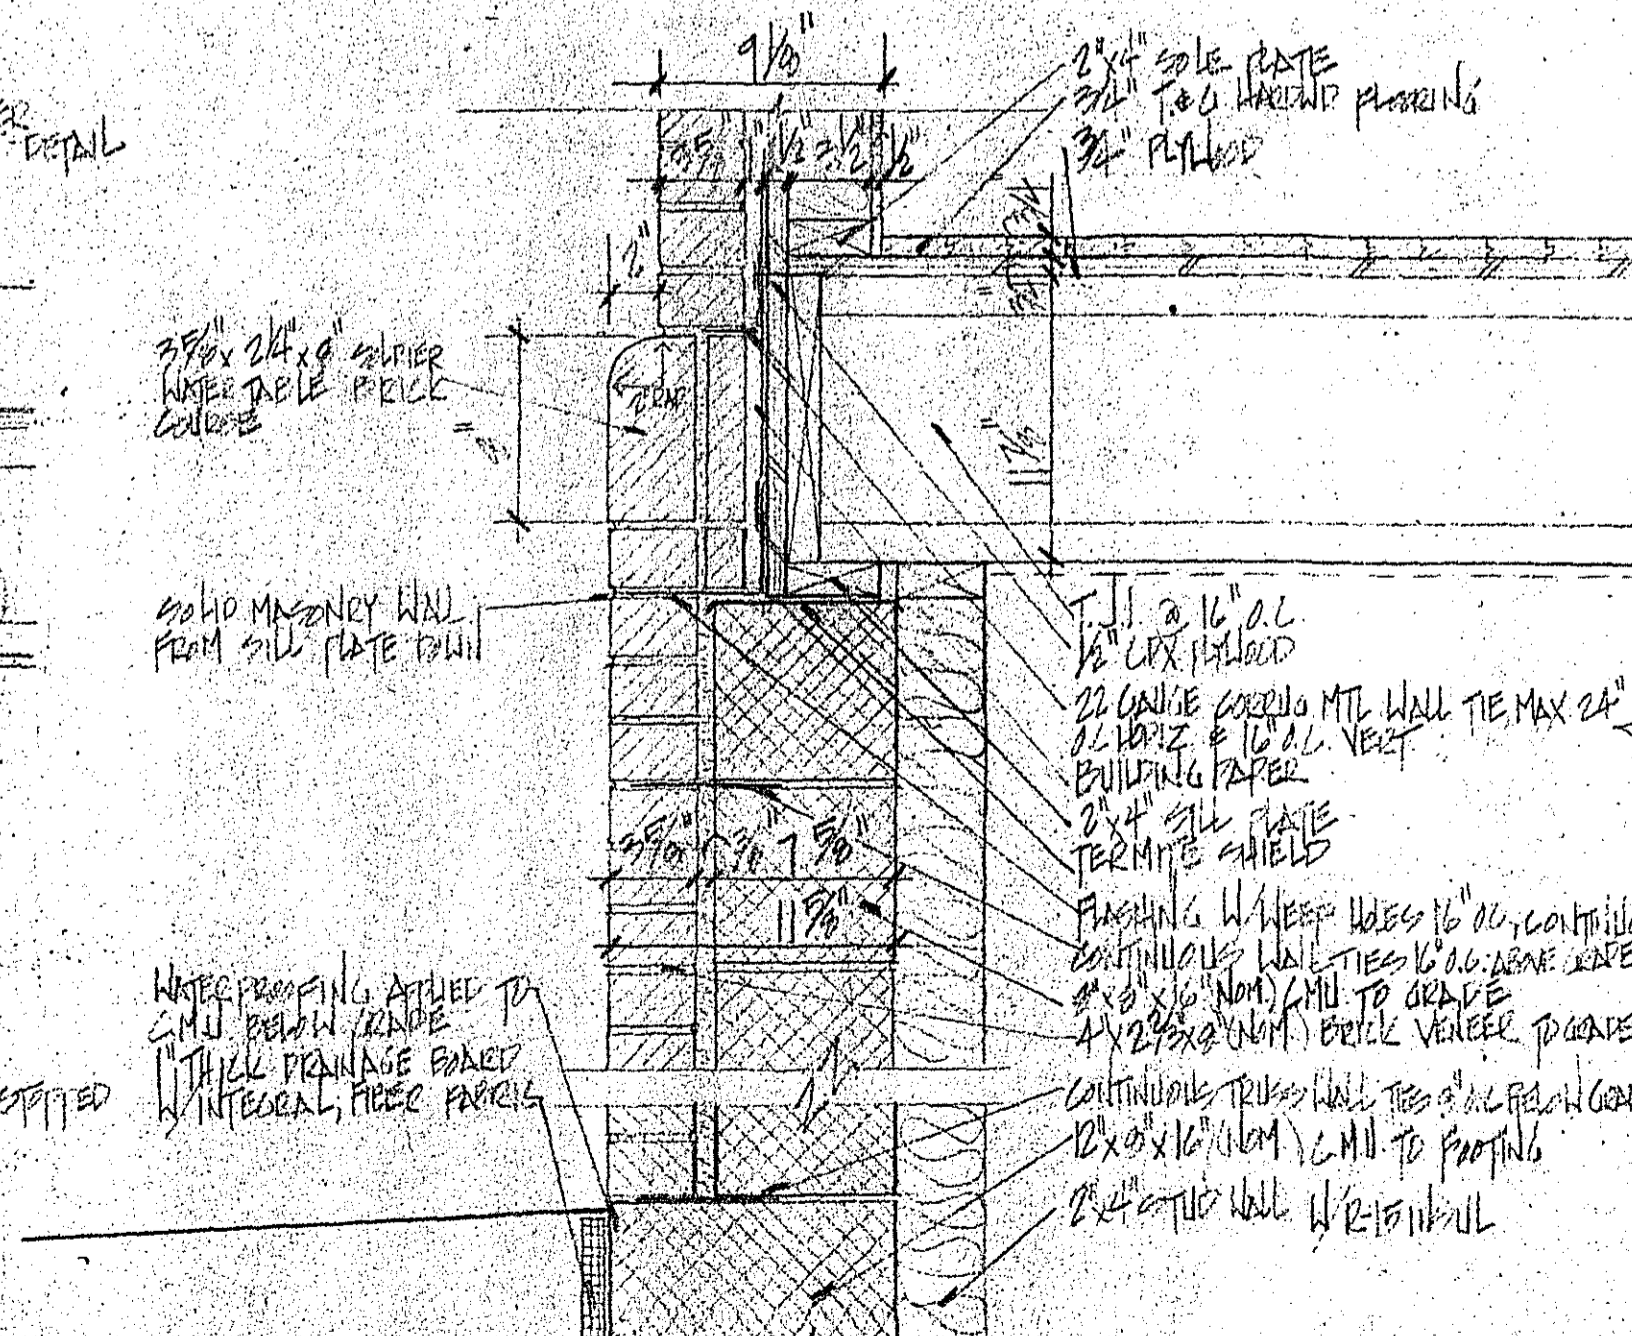 9 1/8"
2"x4" SOLE PLATE
3/4" T.&G HARDWD FLOORING
3/4" PLYWOOD
DETAIL
3 5/8" 1" 1/2" 3 1/2" 1/2"
2"
3/4"
3/4"
3 5/8"x 2 1/4"x 8" SOLDIER
WATER TABLE BRICK
COURSE
2" RAD
8"
11 7/8"
SOLID MASONRY WALL
FROM SILL PLATE DOWN
T.J.I. @ 16" O.C.
1/2" CDX PLYWOOD
22 GAUGE CORRUG MTL WALL TIE, MAX 24"
O.C. HORIZ & 16" O.C. VERT
BUILDING PAPER
2"x4" SILL PLATE
TERMITE SHIELD
3 5/8" 3/8" 7 5/8"
11 5/8"
FLASHING W/WEEP HOLES 16" OC,
CONTINUOUS WALL TIES 16" O.C. ABOVE GRADE
8"x8"x16" (NOM.) CMU TO GRADE
4"x2 2/3"x8" (NOM.) BRICK VENEER TO GRADE
WATERPROOFING APPLIED TO
C.M.U. BELOW GRADE
1" THICK DRAINAGE BOARD
W/INTEGRAL FIBER FABRIC
STEPPED
CONTINUOUS TRUSS WALL TIES 8" O.C. BELOW
12"x8"x16" (NOM.) C.M.U. TO FOOTING
2"x4" STUD WALL W/R-15 INSUL